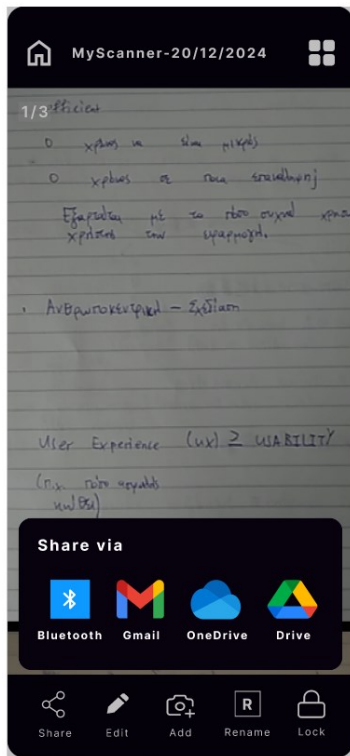 MyScanner-20/12/2024
1/3
efficient
Ο χρόνος να είναι μικρός
Ο χρόνος σε ποια επανάληψη
Εξαρτάται με το πόσο συχνά
χρήστης την εφαρμογή.
Ανθρωποκεντρική - Σχεδίαση
User Experience (UX) ≥ USABILITY
(π.χ. πόσο
Share via
Bluetooth Gmail OneDrive Drive
R
Share Edit Add Rename Lock